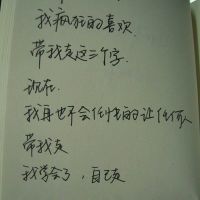 我疯狂的喜欢
带我走这三个字.
现在.
我再也不会任性的让任何人
带我走
我学会了，自己走